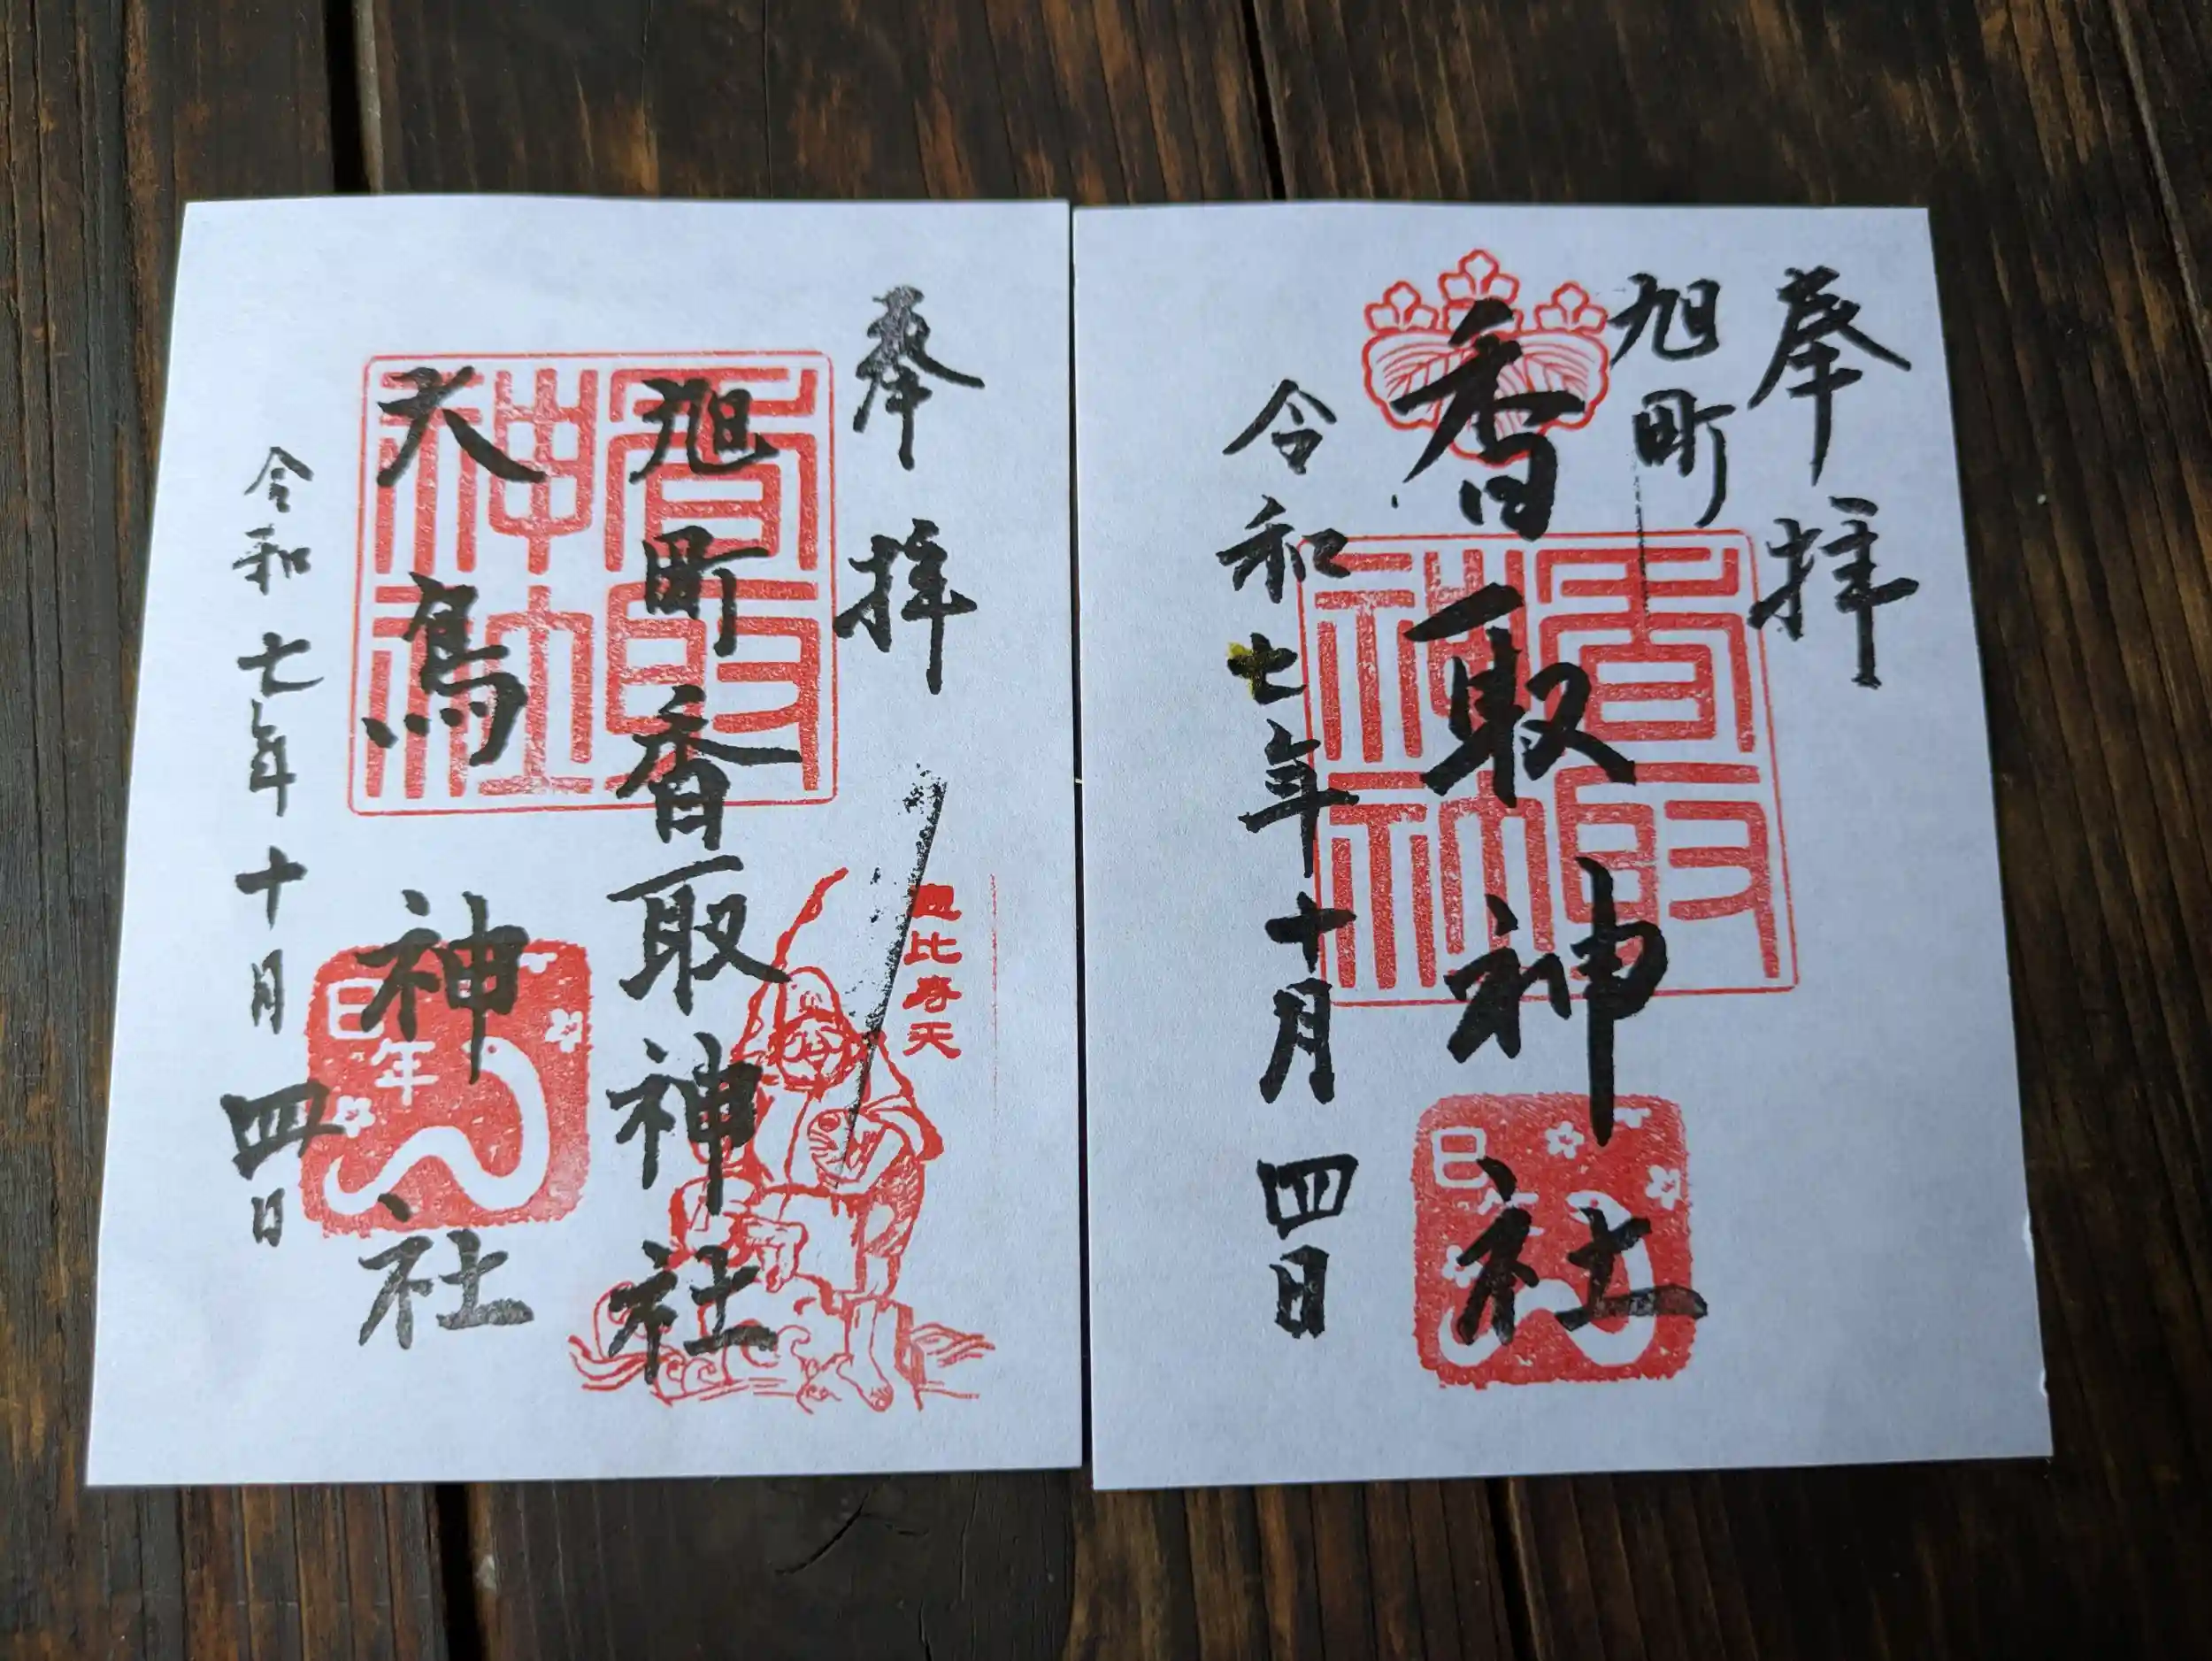 奉拝
旭町
香取神社
令和七年十月四日
香取神社
巳
奉拝
旭町香取神社
大鳥神社
令和七年十月四日
香取神社
恵比寿天
巳年